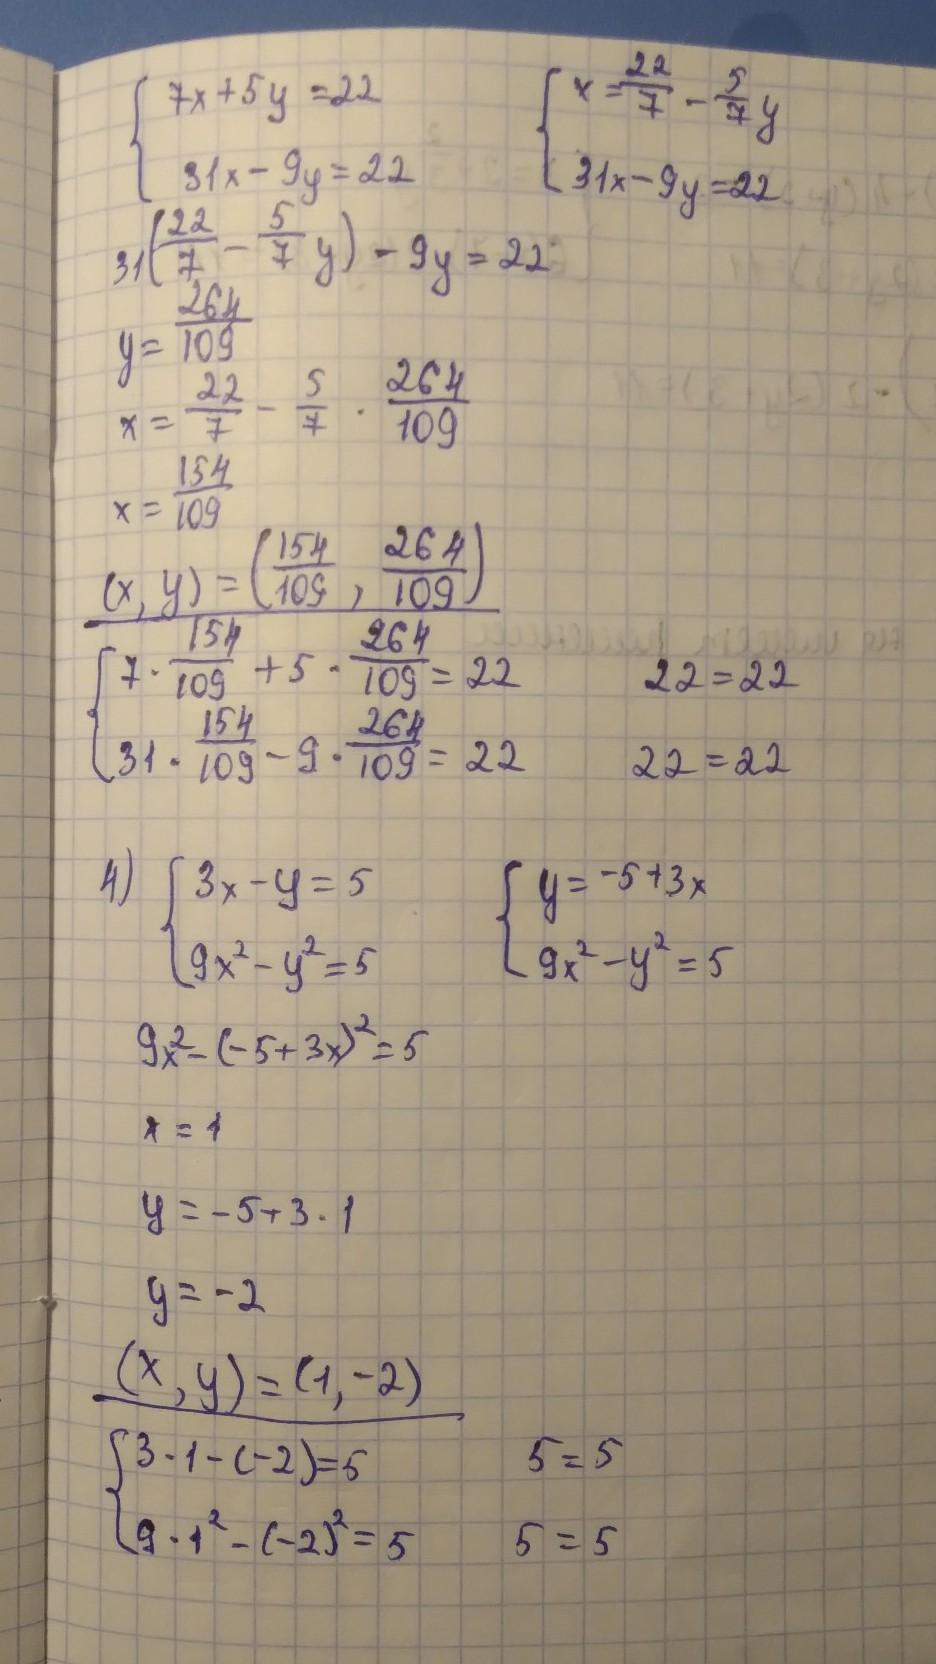 { 7x + 5y = 22   { x = 22/7 - 5/7 y
31x - 9y = 22   31x - 9y = 22
31(22/7 - 5/7 y) - 9y = 22
y = 264/109
x = 22/7 - 5/7 · 264/109
x = 154/109
(x, y) = (154/109, 264/109)
{ 7 · 154/109 + 5 · 264/109 = 22   22 = 22
31 · 154/109 - 9 · 264/109 = 22   22 = 22
4) { 3x - y = 5   { y = -5 + 3x
9x² - y² = 5   9x² - y² = 5
9x² - (-5 + 3x)² = 5
x = 1
y = -5 + 3 · 1
y = -2
(x, y) = (1, -2)
{ 3 · 1 - (-2) = 5   5 = 5
9 · 1² - (-2)² = 5   5 = 5